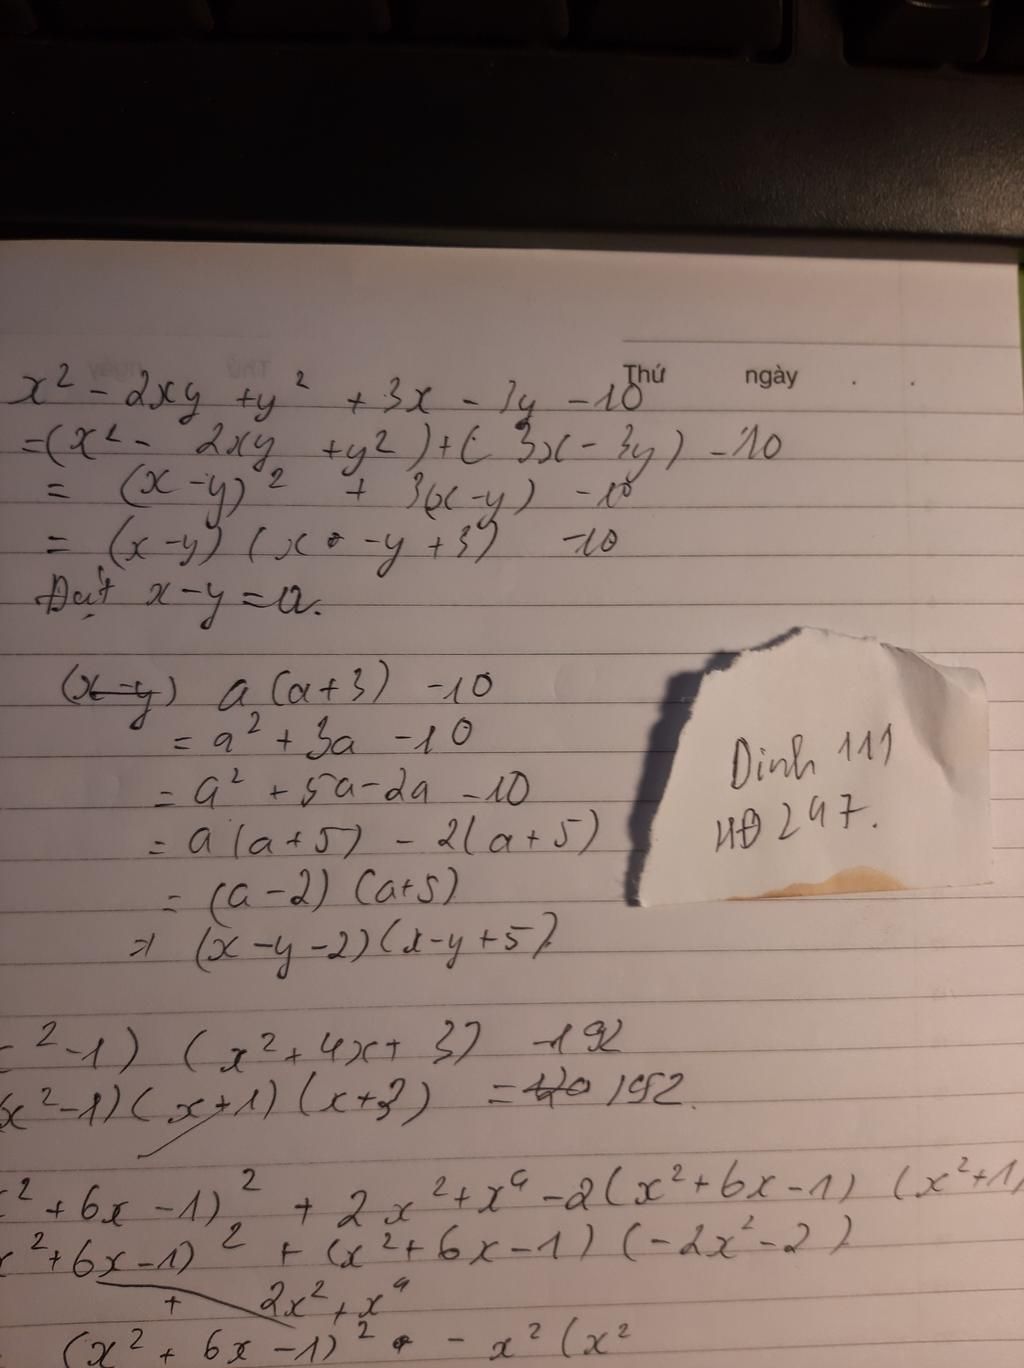 Thứ ngày . .
x² - 2xy + y² + 3x - 3y - 10
= (x² - 2xy + y²) + (3x - 3y) - 10
= (x - y)² + 3(x - y) - 10
= (x - y) (x - y + 3) - 10
Đặt x - y = a.
(x - y) a (a + 3) - 10
= a² + 3a - 10
= a² + 5a - 2a - 10
= a (a + 5) - 2(a + 5)
= (a - 2) (a + 5)
⇒ (x - y - 2)(x - y + 5).
Dinh 111
HĐ 247.
² - 1) (x² + 4x + 3) - 192
(x² - 1)(x + 1)(x + 3) = 192.
² + 6x - 1)² + 2x² + x⁴ - 2(x² + 6x - 1) (x² + 1)
x² + 6x - 1)² + (x² + 6x - 1) (-2x² - 2)
+ 2x² + x⁴
(x² + 6x - 1)² - x² (x²